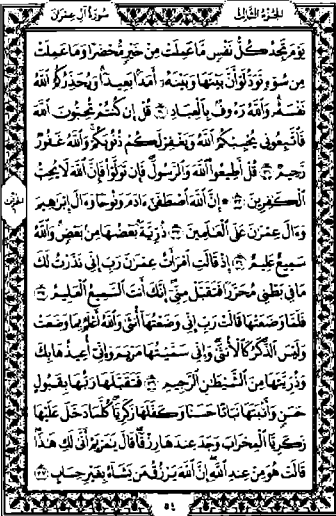 الجزء الثالث
سورة آل عمران
يَوْمَ تَجِدُ كُلُّ نَفْسٍ مَّا عَمِلَتْ مِنْ خَيْرٍ مُّحْضَرًا وَمَا عَمِلَتْ
مِن سُوٓءٍ تَوَدُّ لَوْ أَنَّ بَيْنَهَا وَبَيْنَهُۥٓ أَمَدًۢا بَعِيدًا ۗ وَيُحَذِّرُكُمُ ٱللَّهُ
نَفْسَهُۥ ۗ وَٱللَّهُ رَءُوفٌۢ بِٱلْعِبَادِ ۝٣٠ قُلْ إِن كُنتُمْ تُحِبُّونَ ٱللَّهَ
فَٱتَّبِعُونِى يُحْبِبْكُمُ ٱللَّهُ وَيَغْفِرْ لَكُمْ ذُنُوبَكُمْ ۗ وَٱللَّهُ غَفُورٌ
رَّحِيمٌ ۝٣١ قُلْ أَطِيعُوا۟ ٱللَّهَ وَٱلرَّسُولَ ۖ فَإِن تَوَلَّوْا۟ فَإِنَّ ٱللَّهَ لَا يُحِبُّ
ٱلْكَٰفِرِينَ ۝٣٢ ۞ إِنَّ ٱللَّهَ ٱصْطَفَىٰٓ ءَادَمَ وَنُوحًا وَءَالَ إِبْرَٰهِيمَ
وَءَالَ عِمْرَٰنَ عَلَى ٱلْعَٰلَمِينَ ۝٣٣ ذُرِّيَّةًۢ بَعْضُهَا مِنۢ بَعْضٍ ۗ وَٱللَّهُ
سَمِيعٌ عَلِيمٌ ۝٣٤ إِذْ قَالَتِ ٱمْرَأَتُ عِمْرَٰنَ رَبِّ إِنِّى نَذَرْتُ لَكَ
مَا فِى بَطْنِى مُحَرَّرًا فَتَقَبَّلْ مِنِّىٓ ۖ إِنَّكَ أَنتَ ٱلسَّمِيعُ ٱلْعَلِيمُ ۝٣٥
فَلَمَّا وَضَعَتْهَا قَالَتْ رَبِّ إِنِّى وَضَعْتُهَآ أُنثَىٰ وَٱللَّهُ أَعْلَمُ بِمَا وَضَعَتْ
وَلَيْسَ ٱلذَّكَرُ كَٱلْأُنثَىٰ ۖ وَإِنِّى سَمَّيْتُهَا مَرْيَمَ وَإِنِّىٓ أُعِيذُهَا بِكَ
وَذُرِّيَّتَهَا مِنَ ٱلشَّيْطَٰنِ ٱلرَّجِيمِ ۝٣٦ فَتَقَبَّلَهَا رَبُّهَا بِقَبُولٍ
حَسَنٍ وَأَنۢبَتَهَا نَبَاتًا حَسَنًا وَكَفَّلَهَا زَكَرِيَّا ۖ كُلَّمَا دَخَلَ عَلَيْهَا
زَكَرِيَّا ٱلْمِحْرَابَ وَجَدَ عِندَهَا رِزْقًا ۖ قَالَ يَٰمَرْيَمُ أَنَّىٰ لَكِ هَٰذَا ۖ
قَالَتْ هُوَ مِنْ عِندِ ٱللَّهِ ۖ إِنَّ ٱللَّهَ يَرْزُقُ مَن يَشَآءُ بِغَيْرِ حِسَابٍ ۝٣٧
٥٤